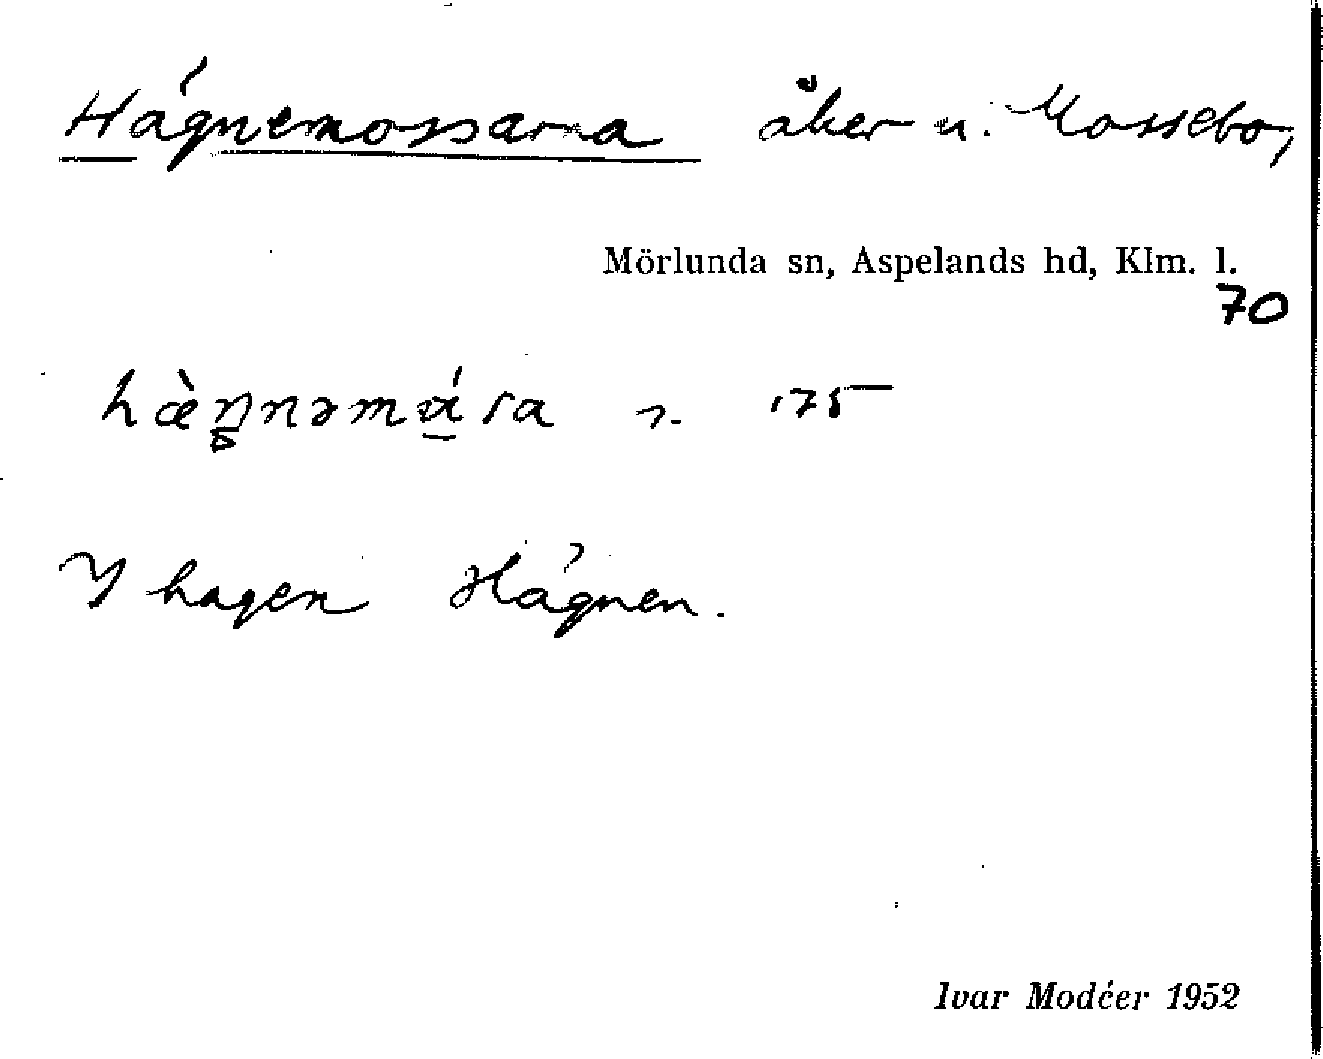 Hägnemossarna åker u. Mossebo,
Mörlunda sn, Aspelands hd, Klm. l.
70
I hagen Hägnen.
Ivar Modéer 1952